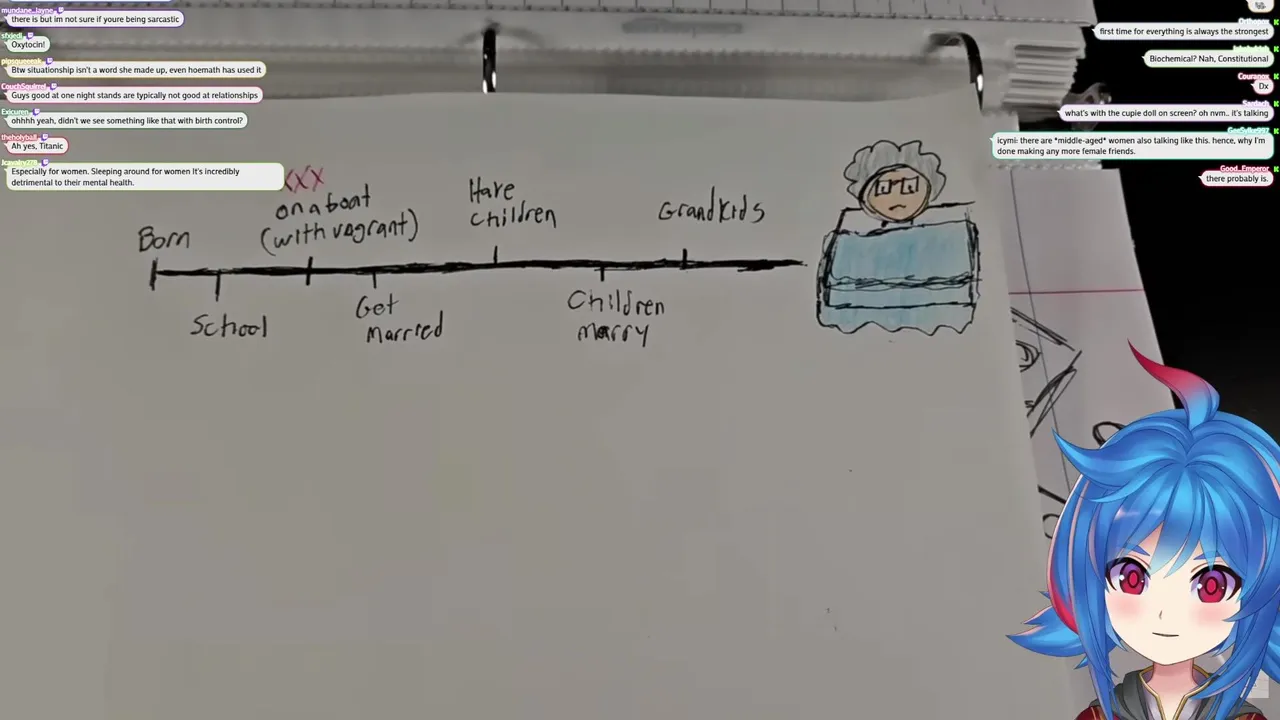 mundane_layne
there is but im not sure if youre being sarcastic
sfxjedi
Oxytocin!
pipsqueeeak
Btw situationship isn't a word she made up, even hoemath has used it
CouchSquirrel
Guys good at one night stands are typically not good at relationships
Exicuren
ohhhh yeah, didn't we see something like that with birth control?
theholyball
Ah yes, Titanic
Especially for women. Sleeping around for women It's incredibly
detrimental to their mental health.
first time for everything is always the strongest
Biochemical? Nah, Constitutional
Couranox
Dx
Sardach
what's with the cupie doll on screen? oh nvm.. it's talking
icymi: there are *middle-aged* women also talking like this. hence, why I'm
done making any more female friends.
Good_Emperor
there probably is.
Born
School
XXX
on a boat
(with vagrant)
Get
Married
Have
Children
Children
Marry
Grandkids